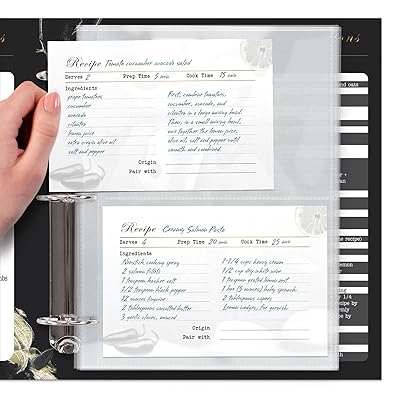 ons
Recipe Tomato cucumber avocado salad
Serves 2 Prep Time 5 min Cook Time 15 min
Ingredients
grape tomatoes
cucumber
avocado
cilantro
lemon juice
extra virgin olive oil
salt and pepper
First, combine tomatoes,
cucumber, avocado, and
cilantro in a large mixing bowl.
Then, in a small mixing bowl,
mix together the lemon juice,
olive oil, salt and pepper until
smooth and combined.
Origin
Pair with
Recipe Creamy Salmon Pasta
Serves 6 Prep Time 20 min Cook Time 25 min
Ingredients
Nonstick cooking spray
2 salmon fillets
1 teaspoon kosher salt
1/2 teaspoon black pepper
12 ounces linguine
2 tablespoons unsalted butter
3 garlic cloves, minced
1-1/4 cups heavy cream
1/2 cup dry white wine
1 teaspoon grated lemon zest
1 box (5 ounces) baby spinach
2 tablespoons capers
Lemon wedges, for garnish
Origin
Pair with
and oats
recipe)
1/4